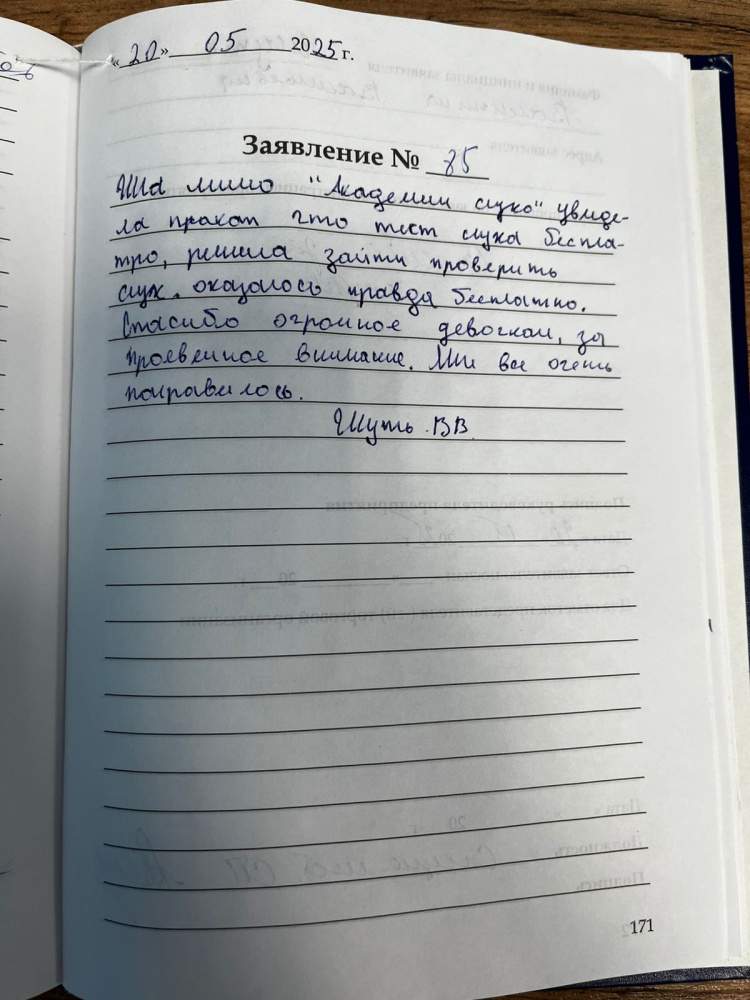 «20» 05 2025 г.
Заявление № 85
Шла мимо "Академии слуха" увиде-
ла плакат что тест слуха беспла-
тно, решила зайти проверить
слух. оказалось правда бесплатно.
Спасибо огромное девочкам, за
проявленное внимание. Мне все очень
понравилось.
Шуть В.В.
171